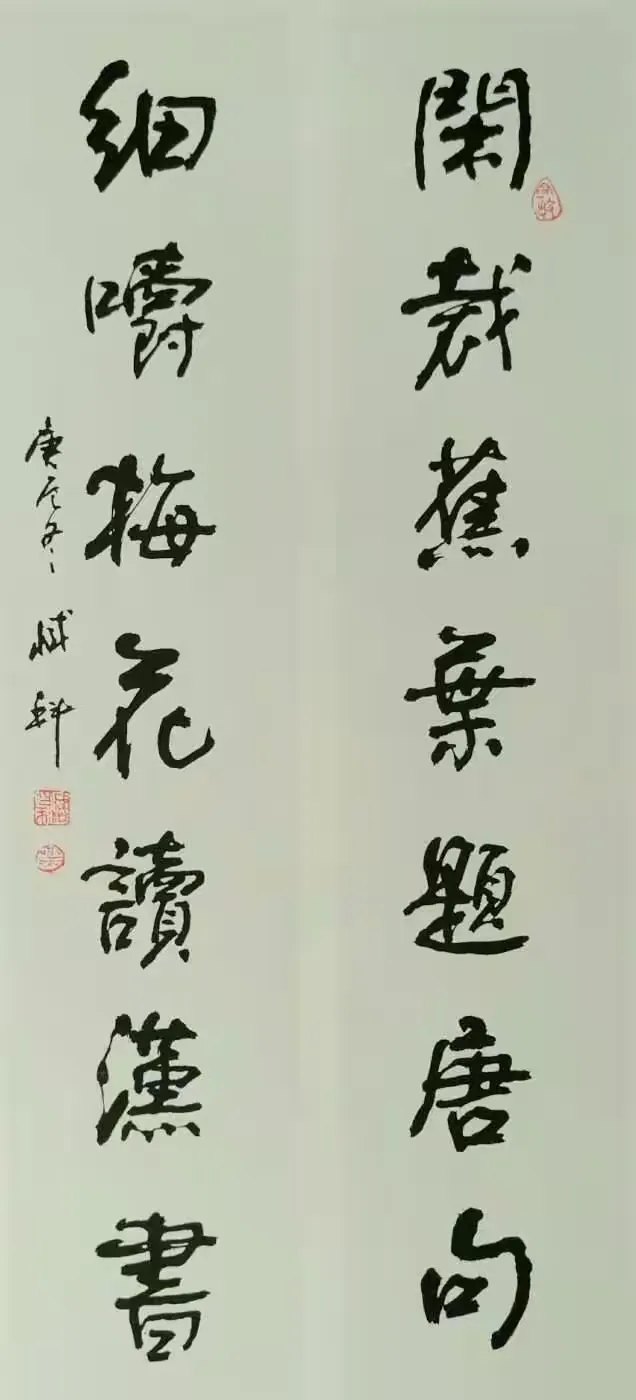 閑裁蕉葉題唐句
細嚼梅花讀漢書
庚辰冬